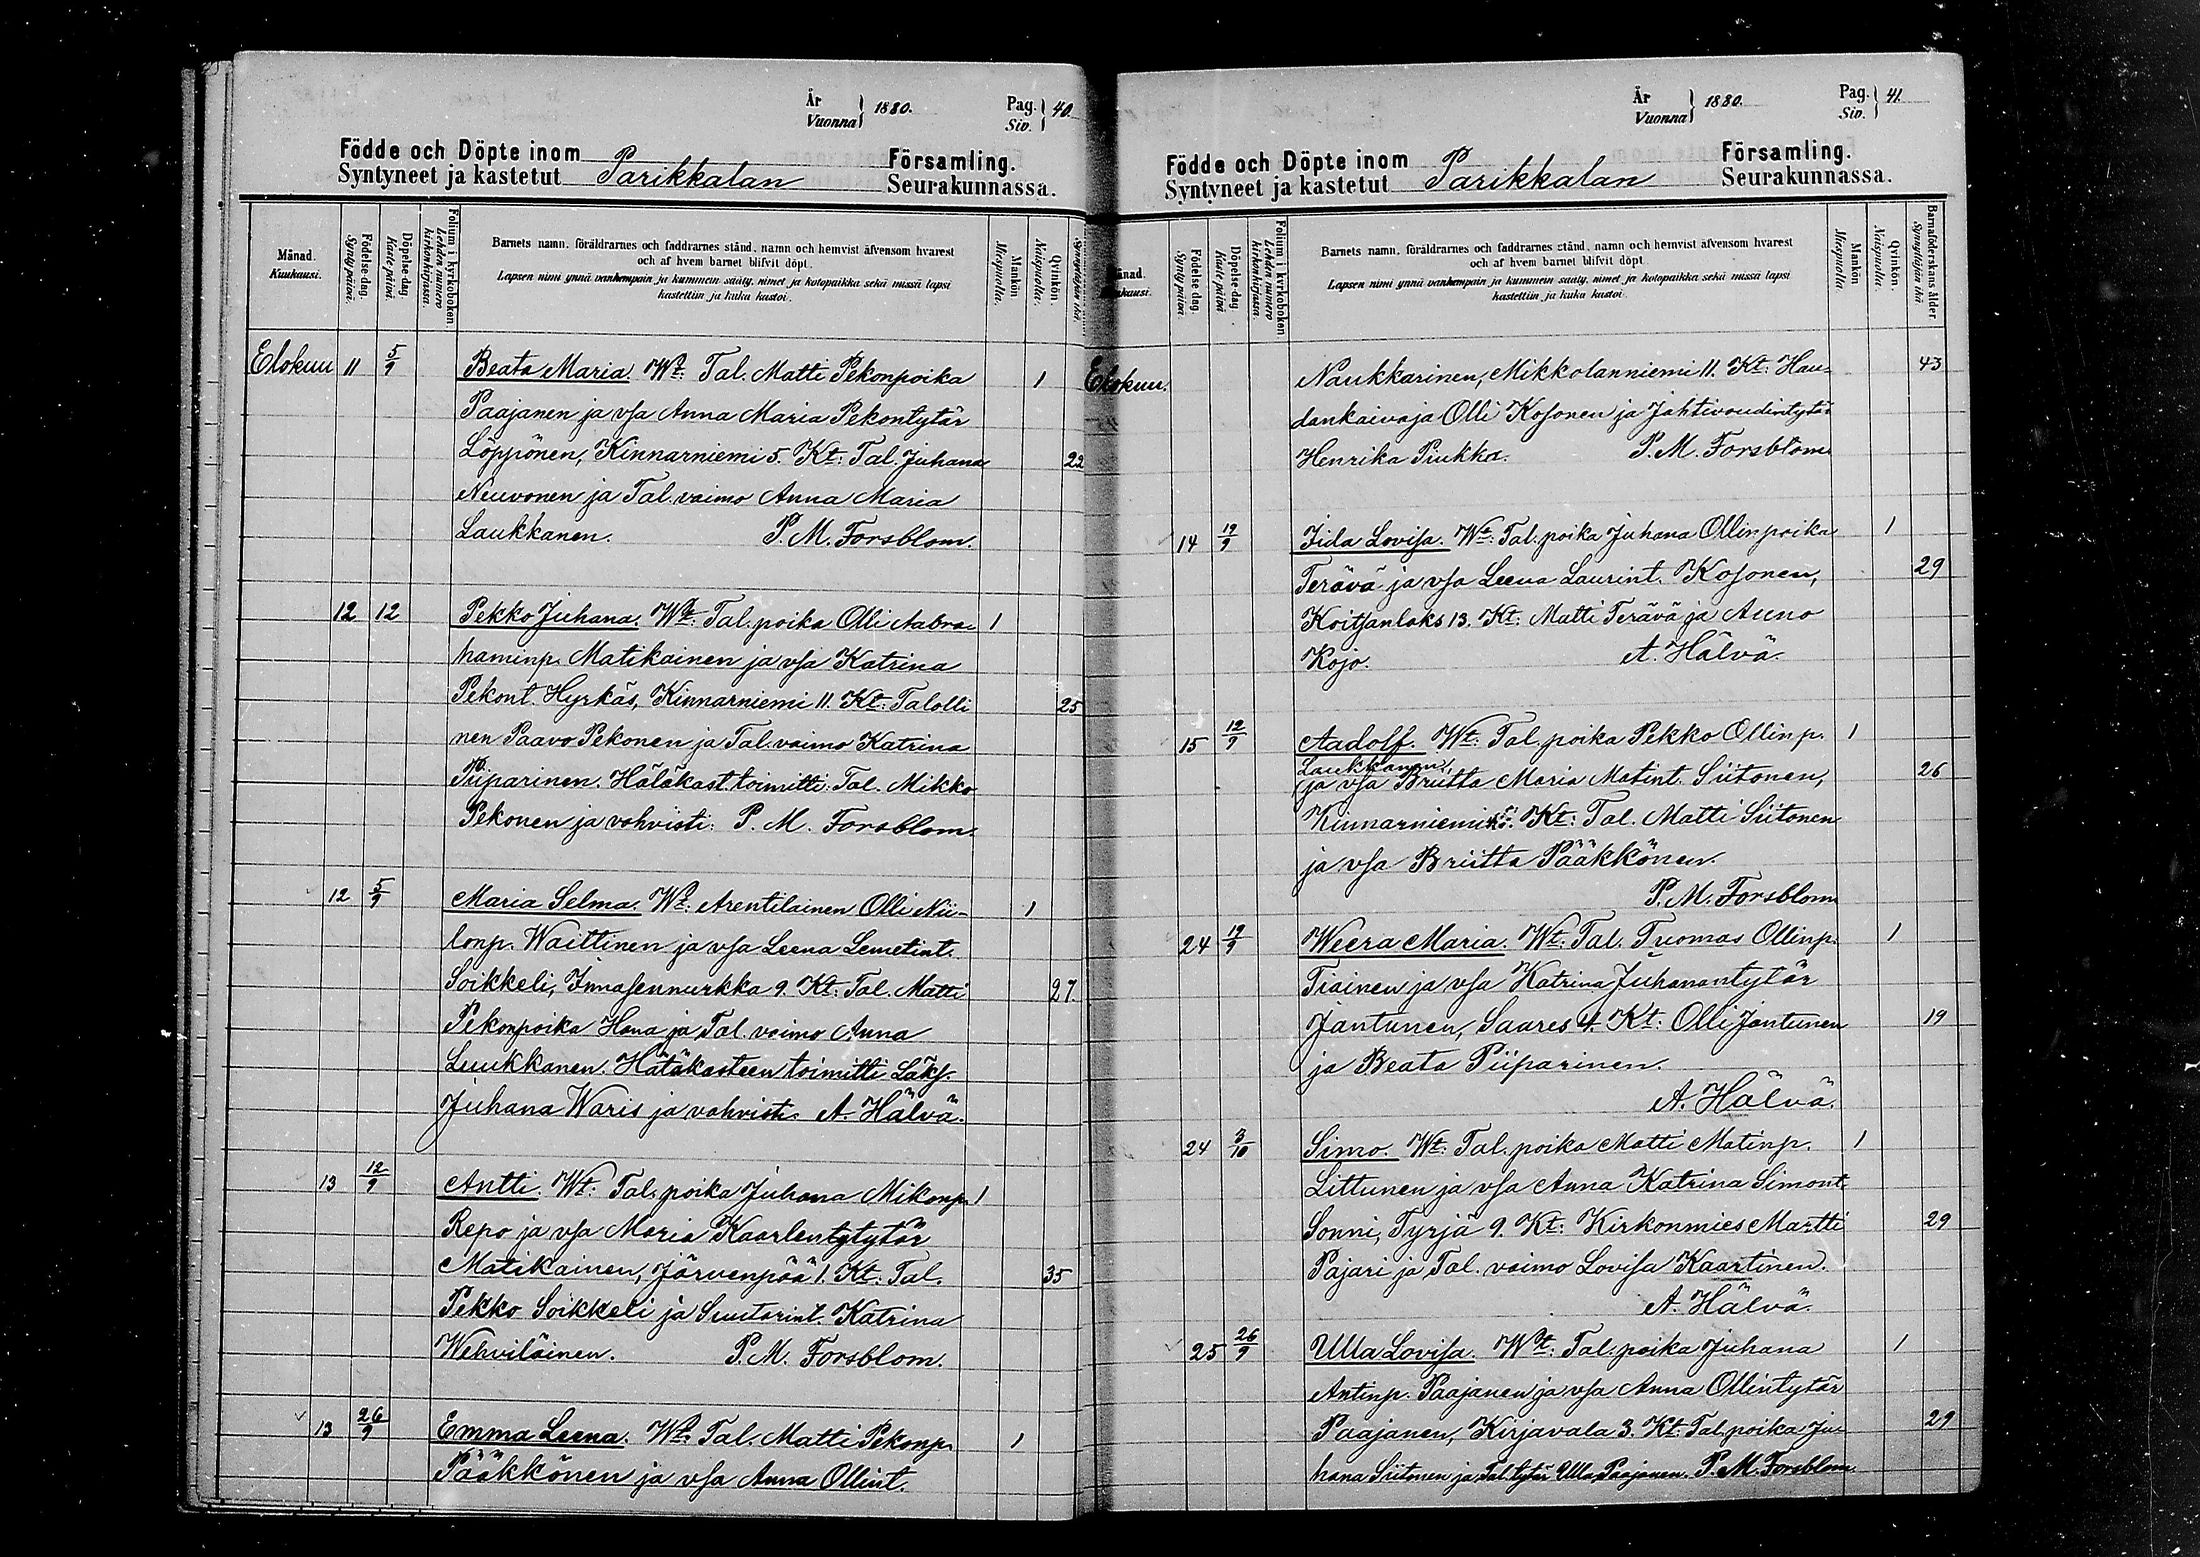 År Vuonna } 1880. Pag. Siv. } 40.
Födde och Döpte inom Parikkalan Församling.
Syntyneet ja kastetut Seurakunnassa.
Månad. Kuukausi.
Födelse-dag. Synty päivä.
Döpelse-dag Kaste päivä
Folium i kyrkoboken. Lehden numero kirkonkirjassa.
Barnets namn, föräldrarnes och faddrarnes stånd, namn och hemvist äfvensom hvarest
och af hvem barnet blifvit döpt.
Lapsen nimi ynnä vanhempain ja kummein sääty, nimet ja kotopaikka sekä missä lapsi
kastettiin ja kuka kastoi.
Mankön Miespuolia.
Qvinkön. Naispuolia.
Elokuu 11 5/9 Beata Maria. Wt: Tal. Matti Pekonpoika 1
Paajanen ja vsa Anna Maria Pekontytär
Löppönen, Kinnarniemi 5. Kt: Tal. Juhana 22
Neuvonen ja Tal. vaimo Anna Maria
Laukkanen. P. M. Forsblom.
12 12 Pekko Juhana. Wt: Tal. poika Olli Aabra- 1
haminp. Matikainen ja vsa Katrina
Pekont. Hyrkäs, Kinnarniemi 11. Kt: Talolli 25
nen Paavo Pekonen ja Tal. vaimo Katrina
Piiparinen. Hätäkast. toimitti: Tal. Mikko
Pekonen ja vahvisti: P. M. Forsblom.
12 5/9 Maria Selma. Wt: Arentilainen Olli Nii- 1
lonp. Waittinen ja vsa Leena Lemetint.
Soikkeli, Innasennurkka 9. Kt: Tal. Matti 27
Pekonpoika Hana ja Tal. vaimo Anna
Luukkanen. Hätäkasteen toimitti Läks.
Juhana Waris ja vahvisti A. Hälvä.
13 12/9 Antti. Wt: Tal. poika Juhana Mikonp. 1
Repo ja vsa Maria Kaarlentytytär
Matikainen, Järvenpää 1. Kt: Tal. 35
Pekko Soikkeli ja Suutarint. Katrina
Wehviläinen. P. M. Forsblom.
13 26/9 Emma Leena. Wt: Tal. Matti Pekonp. 1
Pääkkönen ja vsa Anna Ollint.
År Vuonna } 1880. Pag. Siv. } 41.
Födde och Döpte inom Parikkalan Församling.
Syntyneet ja kastetut Seurakunnassa.
Födelse dag. Synty päivä.
Döpelse-dag Kaste päivä
Folium i kyrkoboken. Lehden numero kirkonkirjassa.
Barnets namn, föräldrarnes och faddrarnes stånd, namn och hemvist äfvensom hvarest
och af hvem barnet blifvit döpt.
Lapsen nimi ynnä vanhempain ja kummein sääty, nimet ja kotopaikka sekä missä lapsi
kastettiin ja kuka kastoi.
Mankön Miespuolia
Qvinkön. Naispuolia.
Barnaföderskans ålder Synnyttäjän ikä
Elokuu. Naukkarinen, Mikkolanniemi 11. Kt: Hau- 43
dankaivaja Olli Kosonen ja Jahtivoudintytär
Henrika Piukka. P. M. Forsblom
14 19/9 Iida Lovisa. Wt: Tal. poika Juhana Ollinpoika 1
Terävä ja vsa Leena Laurint. Kosonen, 29
Koitsanlaks 13. Kt: Matti Terävä ja Anno
Kojo. A. Hälvä.
15 12/9 Aadolf. Wt: Tal. poika Pekko Ollinp. 1
Laukkanen,
ja vsa Briitta Maria Matint. Siitonen, 26
Kinnarniemi Kt: Tal. Matti Siitonen
ja vsa Briitta Pääkkönen.
P. M. Forsblom
24 19/9 Weera Maria. Wt: Tal. Tuomas Ollinp. 1
Tiainen ja vsa Katrina Juhanantytär
Jantunen, Saares 4. Kt: Olli Jantunen 19
ja Beata Piiparinen.
A. Hälvä.
24 3/10 Simo. Wt: Tal. poika Matti Matinp. 1
Littunen ja vsa Anna Katrina Simont.
Sonni, Tyrjä 9. Kt: Kirkonmies Martti 29
Pajari ja Tal. vaimo Lovisa Kaartinen.
A. Hälvä.
25 26/9 Ulla Lovisa. Wt: Tal. poika Juhana 1
Antinp. Paajanen ja vsa Anna Ollintytär
Paajanen, Kirjavala 3. Kt: Tal. poika Ju- 29
hana Siitonen ja Tal. tytär Ulla Paajanen. P. M. Forsblom